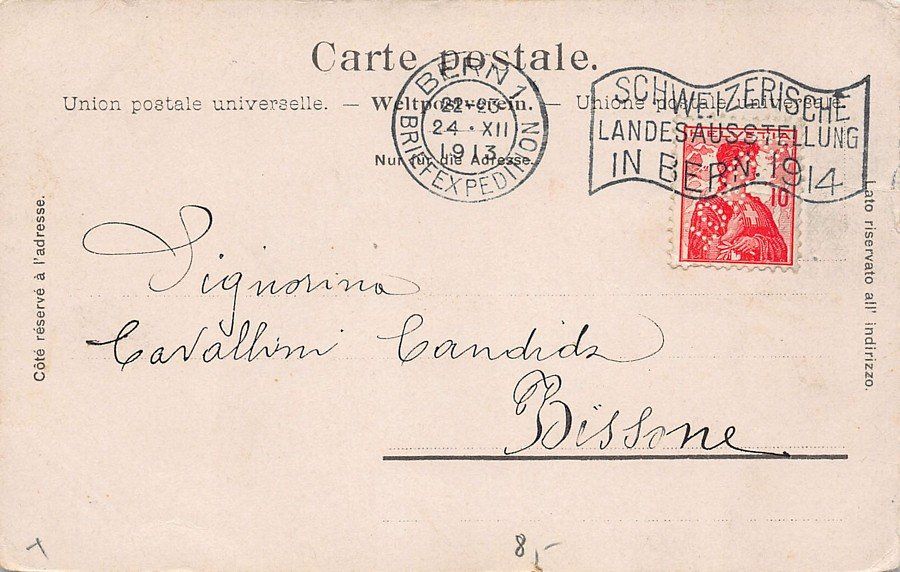 Carte postale.
Union postale universelle. — Weltpostverein. — Unione postale universale.
Nur für die Adresse.
BERN 1
22-23
24·XII
1913
BRIEFEXPEDITION
SCHWEIZERISCHE
LANDESAUSSTELLUNG
IN BERN.1914
10
Côté réservé à l'adresse.
Lato riservato all' indirizzo.
Signorina
Cavallini Candida
Bissone
8,-